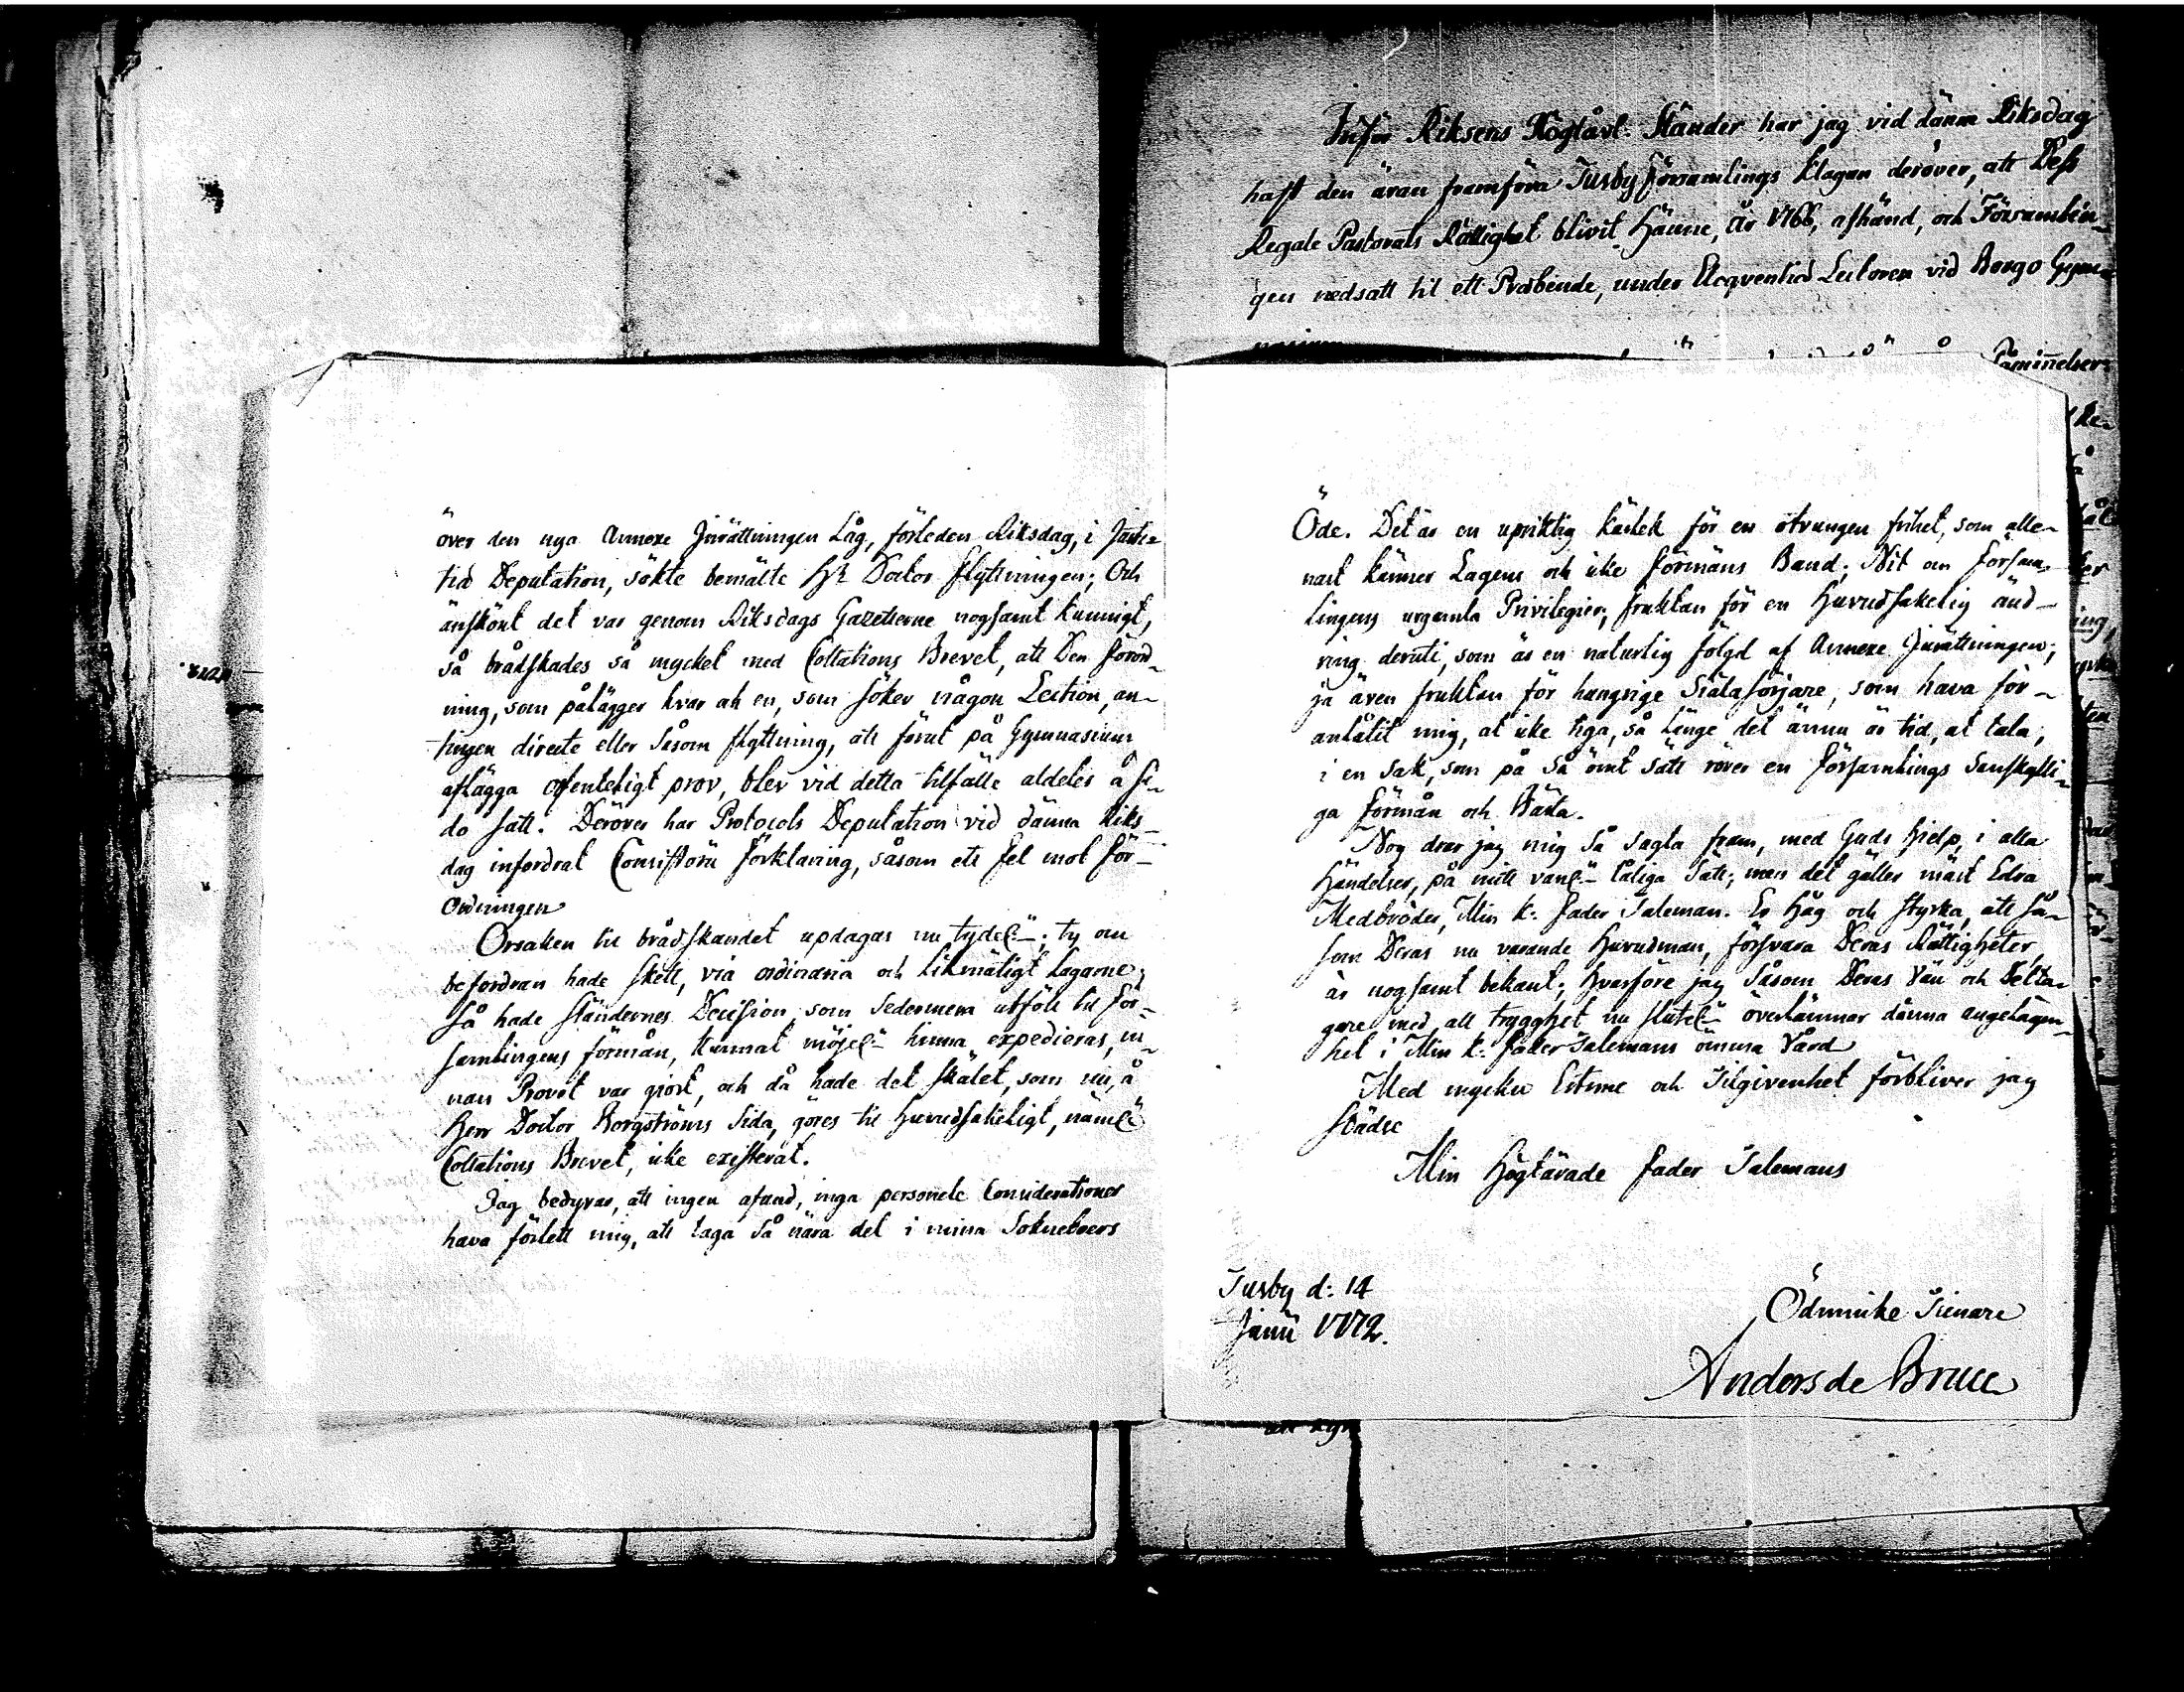 Inför Riksens Högtavl. Ständer har jag vid dänna Riksdag
haft den äran framföra Tusby Församlings klagan deröver, att Dess
Regale Pastorats Rättighet blivit Hänne, År 1766, afhänd, och Församlin-
gen nedsatt til ett Præbende, under Eloqventiæ Lectoren vid Borgo Gym-
Påminnelser
över den nya Annexe Inrättningen Låg, förleden Riksdag, i Justi-
tiæ Deputation, sökte bemälte Hr Doctor flyttningen; Och
änskönt det var genom Riksdags Gazetterne nogsamt kunnigt,
så brådskades så mycket med Collations Brevet, att Den Förord-
ning, som pålägger hvar ok en, som söker någon Lection, an-
tingen directe eller såsom flyttning, att förut på Gymnasium
aflägga ofenteligt prov, blev vid detta tilfälle aldeles å si-
do satt. Deröver har Protocols Deputation vid dänna Riks-
dag infordrat Consistorii Förklaring, såsom ett fel mot För-
Ordningen
Orsaken til brådskandet updagas nu tydel:; ty om
befordran hade skett, via ordinaria och likmätigt Lagarne,
så hade Ständernes Decision, som sedermera utföll til För-
samlingens förmån, kunnat möjel: hinna expedieras, in-
nan Provet var gjort, och då hade det skälet, som nu, å
Herr Doctor Borgströms sida, göres til Huvudsakeligt, näml:
Collations Brevet, icke existerat.
Jag bedyrar, att ingen afund, inga personele Considerationer
hava förlett mig, att taga så nära del i mina Sokneboers
Öde. Det är en upriktig kärlek för en otvungen frihet, som alle-
nast känner Lagens och icke Förmäns Band; Nit om Försam-
lingens urgamla Privilegier; fruktan för en Huvudsakelig änd-
ring deruti, som är en naturlig följd af Annexe Inrättningen;
ja även fruktan för hungrige Siälasörjare, som hava för-
anlåtit mig, at icke tiga, så länge det ännu är tid, at tala,
i en Sak, som på så ömt sätt rörer en Församlings Sanskylli-
ga Förmån och Bästa.
Nog drar jag mig så sagta fram, med Guds Hjelp, i alla
Händelser, på mitt vanl: tåliga Sätt; men det gäller mäst Edra
Medbröder, Min k: Fader Taleman. Er Håg och styrka, att så-
som Deras nu varande Huvudman, försvara Deras Rättigheter,
är nogsamt bekant; Hvarföre jag såsom Deras Vän och Delta-
gare med all trygghet nu slutel: överlämnar dänna angelägen-
het i Min k: Fader Talemans ömma Vård
Med mycken Estime och Tilgivenhet förbliver jag
städse
Min Högtärade Fader Talemans
Tusby d: 14
Junii 1772.
Ödmiuke Tienare
Anders de Bruce